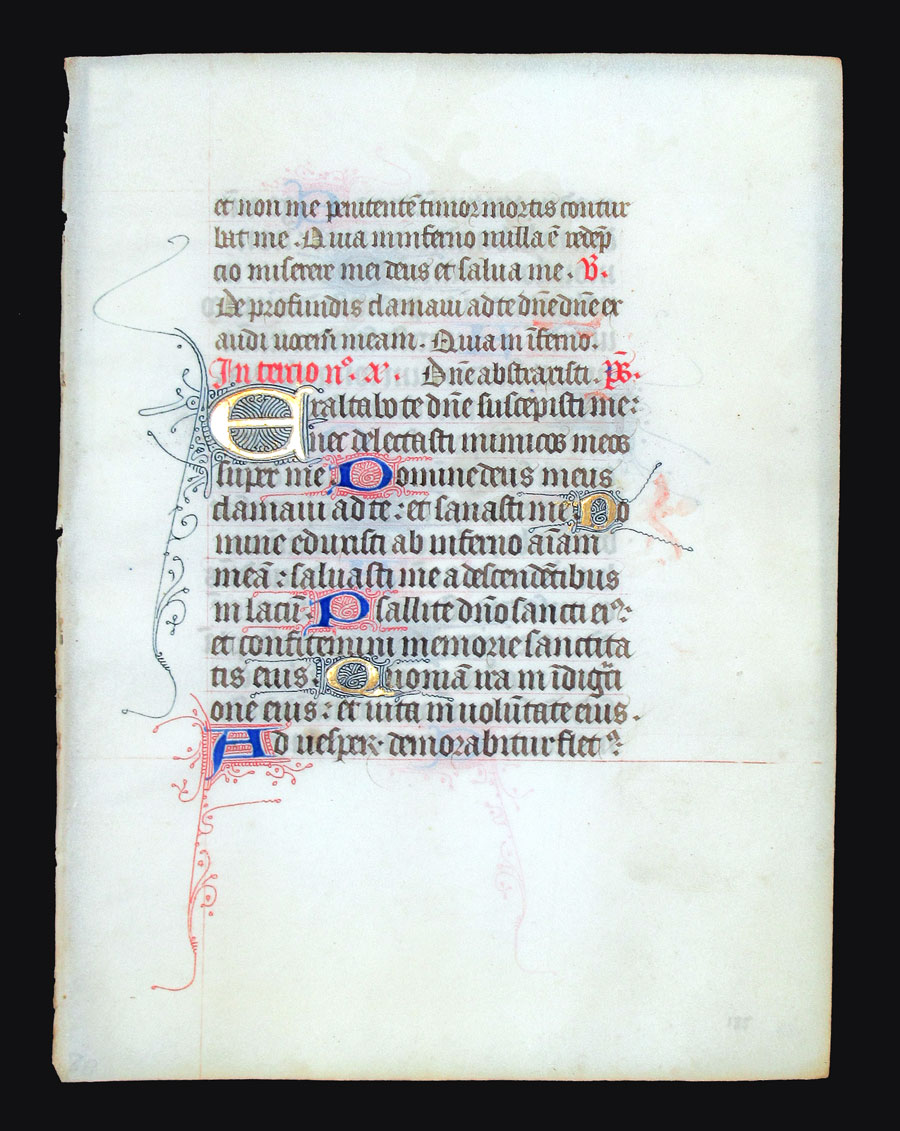 et non me penitentē timor mortis contur
bat me. Quia in inferno nulla ē redēp
cio miserere mei deus et salua me. V̄.
De profundis clamaui ad te dn̄e dn̄e ex
audi uocem meam. Quia in īferno.
In tercio n°. a͞. Dn̄e abstraxisti. p̄s.
Exaltabo te dn̄e suscepisti me:
nec delectasti inimicos meos
super me Domine deus meus
clamaui ad te: et sanasti me Do
mine eduxisti ab inferno aīam
meā: saluasti me a descendētibus
in lacū. Psallite dn̄o sancti eiꝰ:
et confitemini memorie sanctita
tis eius. Quoniā ira in īdigti
one eius: et uita in uolūtate eius.
Ad uesperū demorabitur fletꝰ:
185